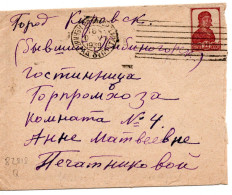 Город Кировск.
(бывший Хибиногорск)
гостинница
Горпромхоза
комната № 4.
Анне Матвеевне
Печатниковой